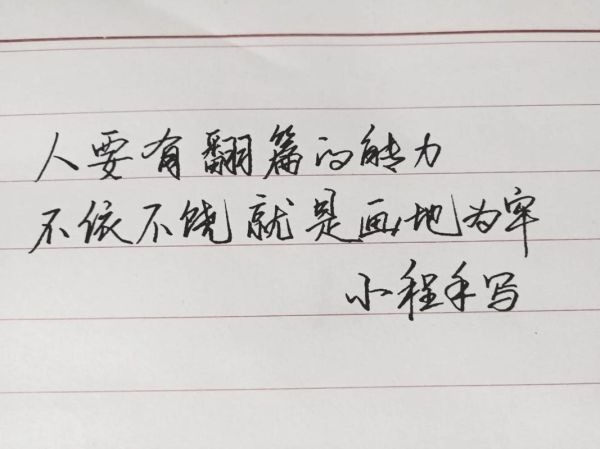 人要有翻篇的能力
不依不饶就是画地为牢
小程手写